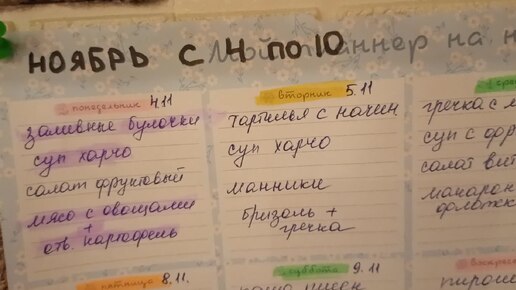 НОЯБРЬ С 4 ПО 10
Мой планнер на н
понедельник 4.11
заливные булочки
суп харчо
салат фруктовый
мясо с овощами
+
отв. картофель
вторник 5.11
тартилья с начин
суп харчо
манники
бризоль +
гречка
гречка с м
суп с фр
салат вит
макарон
флотск
пятница 8.11.
суббота 9.11
воскрес